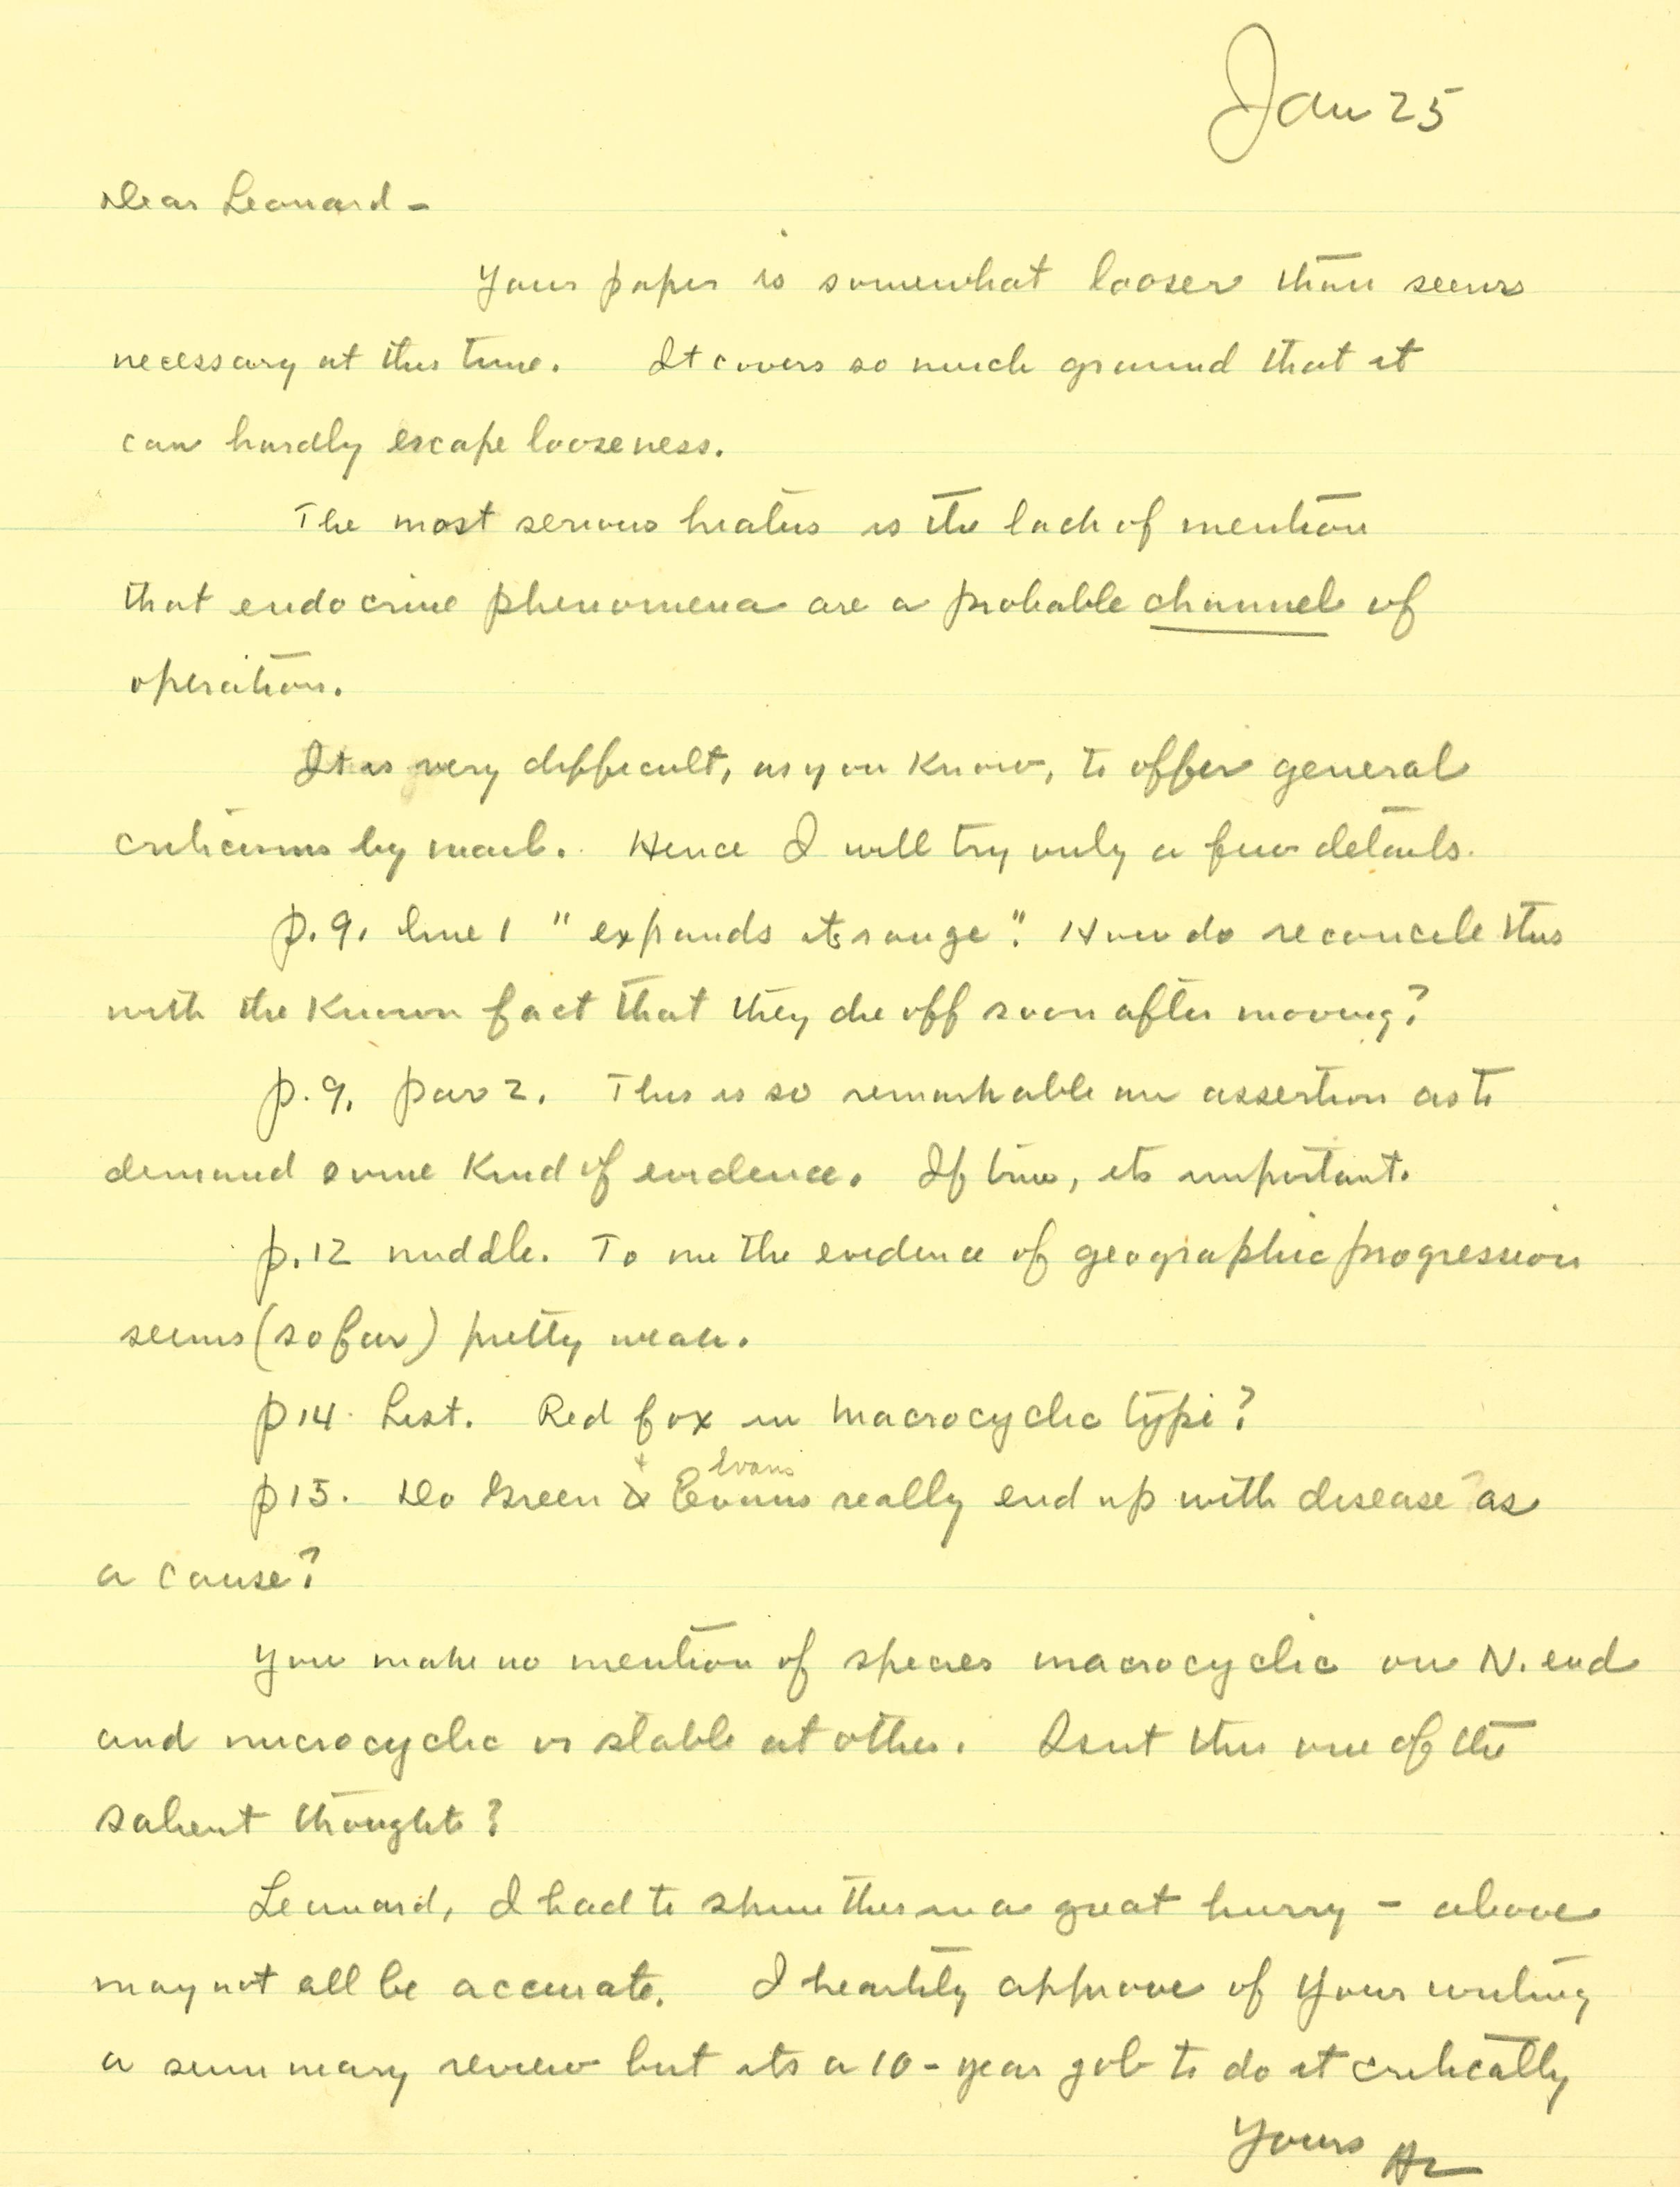 Jan 25
Dear Leonard -
Your paper is somewhat looser than seems
necessary at this time. It covers so much ground that it
can hardly escape looseness.
The most serious hiatus is the lack of mention
that endocrine phenomena are a probable channel of
operation.
It is very difficult, as you know, to offer general
criticisms by mail. Hence I will try only a few details.
p.9, line 1 "expands its range". How do reconcile this
with the known fact that they die off soon after moving?
p.9, par 2. This is so remarkable an assertion as to
demand some kind of evidence. If true, its important.
p.12 middle. To me the evidence of geographic progression
seems (so far) pretty weak.
p14. List. Red fox in macrocyclic type?
+ Evans
p15. Do Green & Evans really end up with disease as
a cause?
You make no mention of species macrocyclic on N. end
and microcyclic or stable at other. Isnt this one of the
salient thoughts?
Leonard, I had to skim this in a great hurry - above
may not all be accurate. I heartily approve of your writing
a summary review but its a 10-year job to do it critically
Yours AL